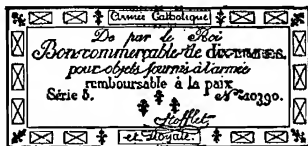 Armée Catholique
De par le Roi
Bon commerçable de dix livres,
pour objets fournis à l'armée
remboursable à la paix
Série 5. Nro 10390.
Stofflet
et Royale.